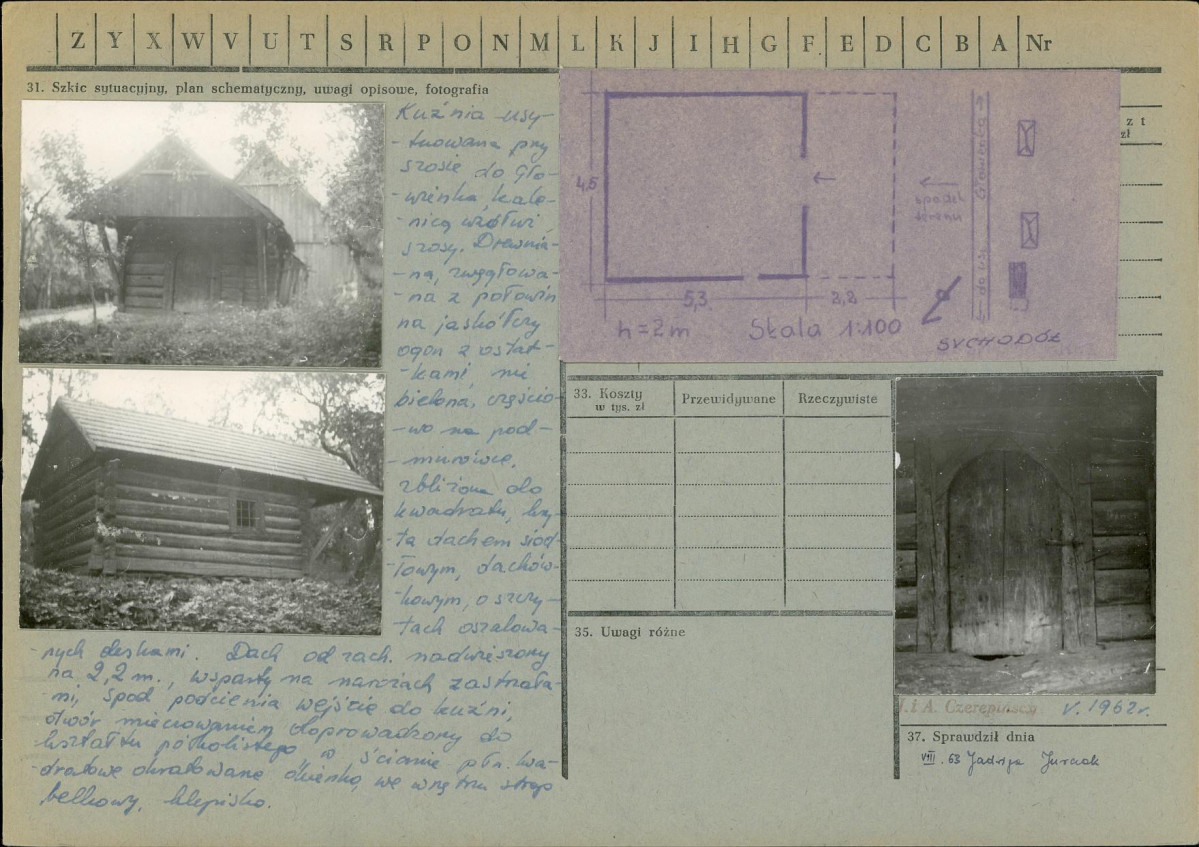 Z Y X W V U T S R P O N M L K J I H G F E D C B A Nr
31. Szkic sytuacyjny, plan schematyczny, uwagi opisowe, fotografia
Kuźnia usy-
-tuowana przy
szosie do Gło-
-wienka, kale-
-nicą wzdłuż
szosy. Drewnia-
-na, zwęgłowa-
-na z połowin
na jaskółczy
ogon z ostat-
-kami, nie
bielona, częścio-
-wo na pod-
-murówce,
zbliżona do
kwadratu, kry-
-ta dachem siod-
-łowym, dachów-
-kowym, o szczy-
-tach oszalowa-
-nych deskami. Dach od zach. nadwieszony
na 2,2 m., wsparty na narożach zastrzała-
-mi, spod podcienia wejście do kuźni,
otwór doprowadzony do
kształtu półkolistego, w ścianie płn. kwa-
-dratowe okratowane okienko, we wnętrzu strop
belkowy, klepisko.
4,5
5,3
2,2
h = 2 m
Skala 1:100
spadek
terenu
do wsi
Głowienka
SUCHODÓŁ
z t
zł
33. Koszty
w tys. zł
Przewidywane
Rzeczywiste
35. Uwagi różne
J. i A. Czerepińscy V. 1962r.
37. Sprawdził dnia
VIII. 63 Jadwiga